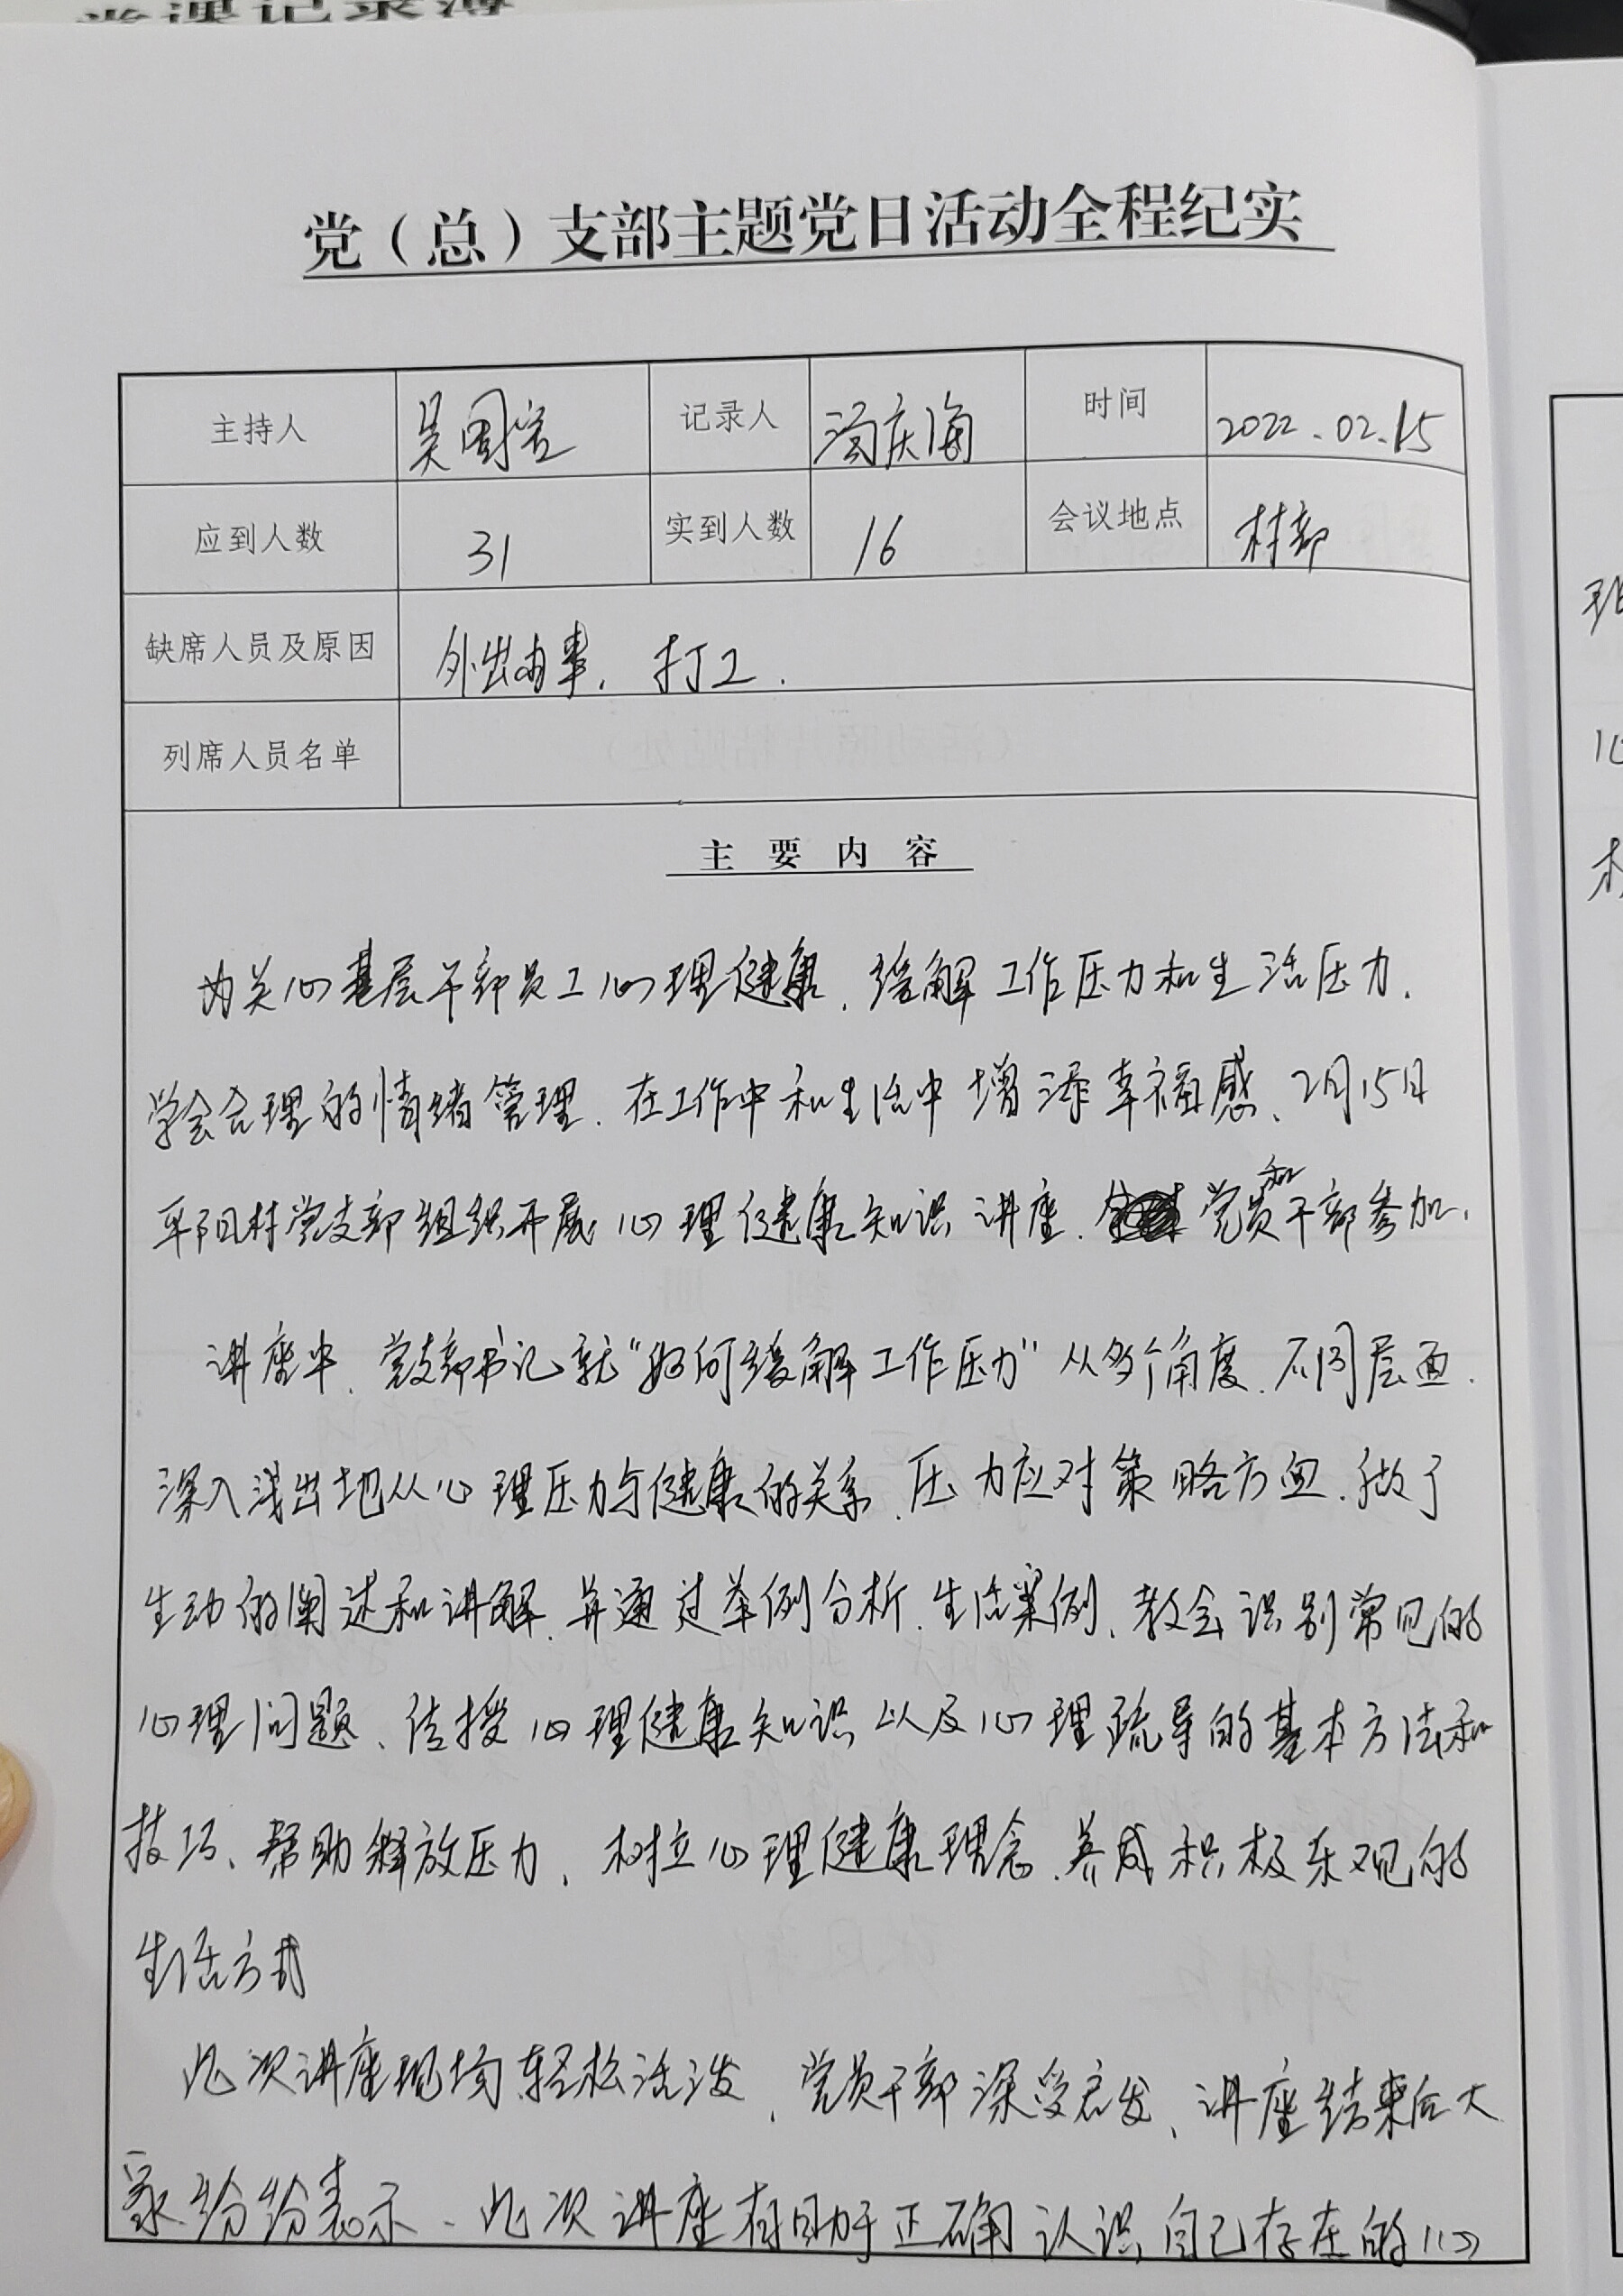 党课记录簿
党（总）支部主题党日活动全程纪实
主持人 吴国宏 记录人 汤庆海 时间 2022.02.15
应到人数 31 实到人数 16 会议地点 村部
缺席人员及原因 外出办事、打工.
列席人员名单
主要内容
为关心基层干部员工心理健康、缓解工作压力和生活压力、
学会合理的情绪管理、在工作中和生活中增添幸福感、2月15日
平阳村党支部组织开展心理健康知识讲座、党员和干部参加、
讲座中、党支部书记就“如何缓解工作压力”从多个角度、不同层面、
深入浅出地从心理压力与健康的关系、压力应对策略方面、做了
生动的阐述和讲解、并通过举例分析、生活案例、教会识别常见的
心理问题、传授心理健康知识以及心理疏导的基本方法和
技巧、帮助释放压力、树立心理健康理念、养成积极乐观的
生活方式
此次讲座现场轻松活泼、党员干部深受启发、讲座结束后大
家纷纷表示、此次讲座有助于正确认识自己存在的心